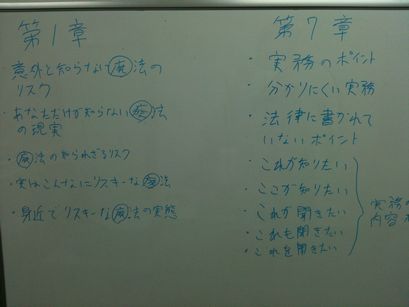 第1章
・意外と知らない廃法の
リスク
・あなただけが知らない廃法
の現実
・廃法の知られざるリスク
・実はこんなにリスキーな廃法
・身近でリスキーな廃法の実態
第7章
・実務のポイント
・分かりにくい実務
・法律に書かれて
いないポイント
・これが知りたい
・ここが知りたい
・これが聞きたい
・これも聞きたい
・これを聞きたい
実務の
内容